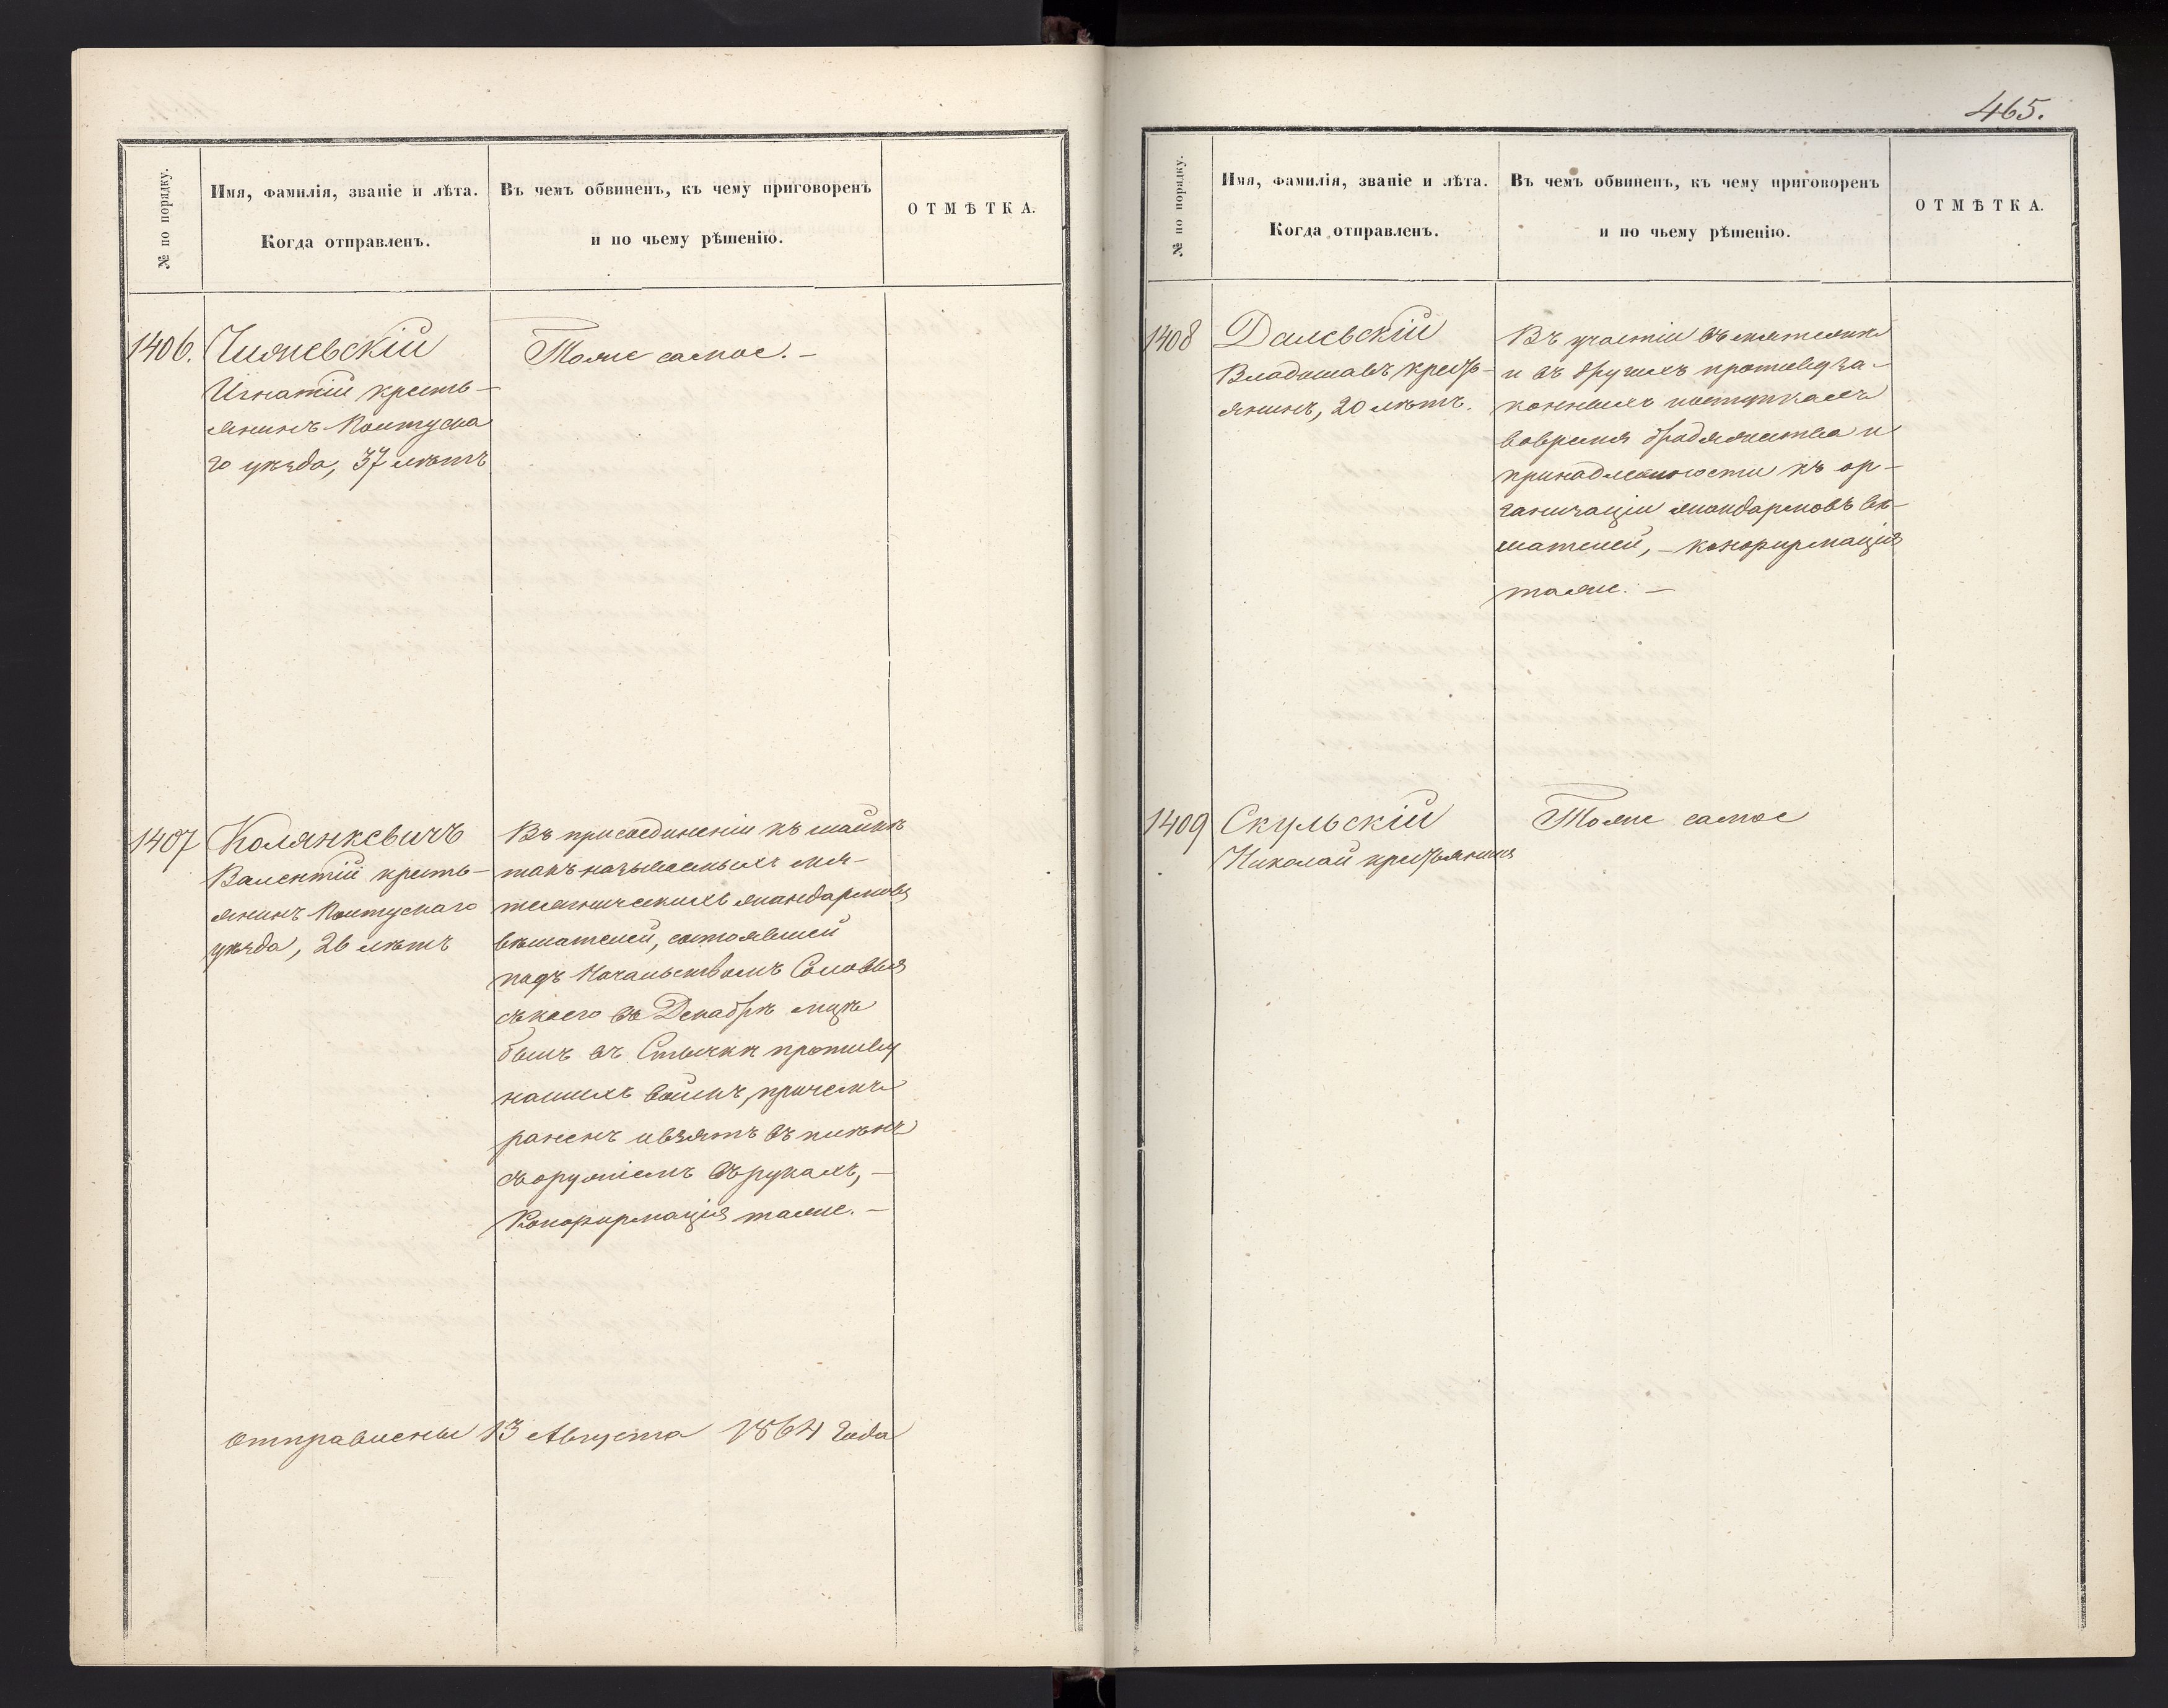 № по порядку.
Имя, фамилія, званіе и лѣта.
Когда отправленъ.
Въ чемъ обвиненъ, къ чему приговоренъ
и по чьему рѣшенію.
ОТМѢТКА.
1406.
Чижевскій
Игнатій кресть-
янинъ Полтуска
го уѣзда, 37 лѣтъ
Тоже самое. –
1407
Колянкевичъ
Валентій кресть-
янинъ Полтускаго
уѣзда, 26 лѣтъ
Въ присоединеніи къ шайкѣ
такъ называемыхъ мя-
тежническихъ жандармовъ
вѣшателей, состоявшей
подъ Начальствомъ
съ коего въ Декабрѣ мцѣ
былъ въ Стычкѣ противу
нашихъ войскъ, причемъ
раненъ и взятъ въ плѣнъ
съ оружіемъ въ рукахъ, –
Конфирмація таже. –
отправлены 13 Августа 1864 года
465.
№ по порядку.
Имя, фамилія, званіе и лѣта.
Когда отправленъ.
Въ чемъ обвиненъ, къ чему приговоренъ
и по чьему рѣшенію.
ОТМѢТКА.
1408
Далевскій
Владиславъ кресть-
янинъ, 20 лѣтъ.
Въ участіи въ мятежѣ
и въ другихъ противуза-
конныхъ поступкахъ
вовремя бродяжества и
принадлежности къ ор-
ганизаціи жандармовъ вѣ-
шателей, – конфирмація
таже. –
1409
Скульскій
Николай крестьянинъ
Тоже самое